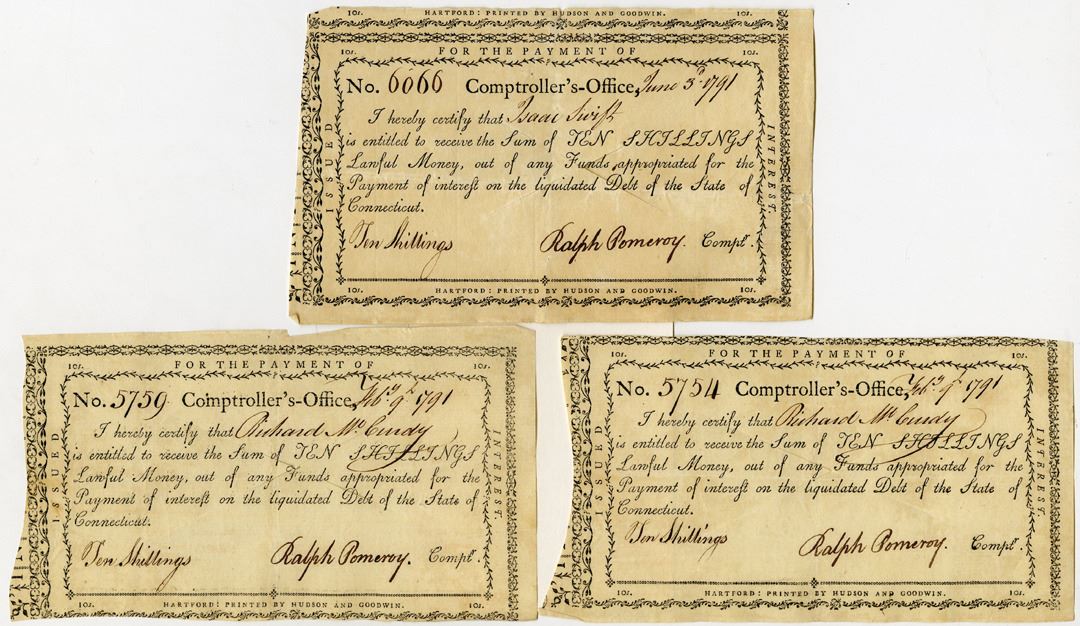 10s. HARTFORD: PRINTED BY HUDSON AND GOODWIN. 10s.
10s. FOR THE PAYMENT OF 10s.
ISSUED
INTEREST.
No. 6066 Comptroller's-Office, June 3d 1791
I hereby certify that Isaac Swift
is entitled to receive the Sum of TEN SHILLINGS
Lawful Money, out of any Funds appropriated for the
Payment of interest on the liquidated Debt of the State of
Connecticut.
Ten Shillings Ralph Pomeroy. Compt.
10s. HARTFORD: PRINTED BY HUDSON AND GOODWIN. 10s.
10s. FOR THE PAYMENT OF 10s.
ISSUED
INTEREST.
No. 5759 Comptroller's-Office, Feby. 9th 1791
I hereby certify that Richard Mc Curdy
is entitled to receive the Sum of TEN SHILLINGS
Lawful Money, out of any Funds appropriated for the
Payment of interest on the liquidated Debt of the State of
Connecticut.
Ten Shillings Ralph Pomeroy. Compt.
10s. HARTFORD: PRINTED BY HUDSON AND GOODWIN. 10s.
10s. FOR THE PAYMENT OF 10s.
ISSUED
INTEREST.
No. 5754 Comptroller's-Office, Feb. 9 1791
I hereby certify that Richard Mc Curdy
is entitled to receive the Sum of TEN SHILLINGS
Lawful Money, out of any Funds appropriated for the
Payment of interest on the liquidated Debt of the State of
Connecticut.
Ten Shillings Ralph Pomeroy. Compt.
10s. HARTFORD: PRINTED BY HUDSON AND GOODWIN. 10s.